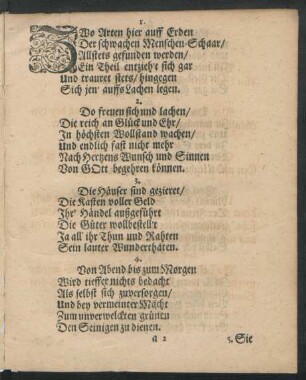 1.
ZWo Arten hier auff Erden
Der schwachen Menschen-Schaar/
Allstets gefunden werden/
Ein Theil entzieht sich gar
Und trauret stets/ hingegen
Sich jen' auffs Lachen legen.
2.
Do freuen sich und lachen/
Die reich an Glück und Ehr/
In höchsten Wollstand wachen/
Und endlich fast nicht mehr
Nach Hertzens Wunsch und Sinnen
Von GOtt begehren können.
3.
Die Häuser sind gezieret/
Die Kasten voller Geld
Ihr' Händel außgeführt
Die Güter wollbestell't
Ja all' ihr Thun und Rahten
Sein lauter Wunderthaten.
4.
Von Abend bis zum Morgen
Wird tieffer nichts bedacht
Als selbst sich zuversorgen/
Und bey vermeinter Macht
Zum unverwelckten grünen
Den Seinigen zu dienen.
a 2 5. Sie